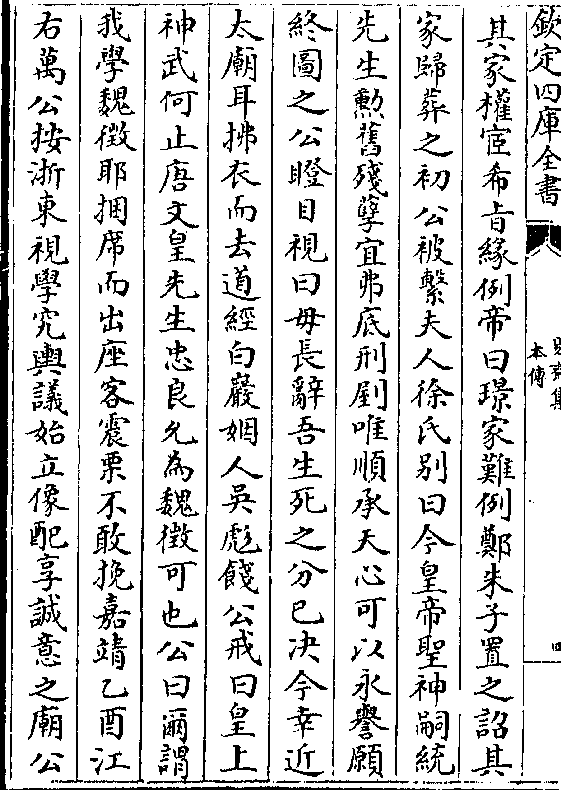 欽定四庫全書
本傳
四
其家權宦希旨緣例帝曰璟家難例鄭朱子置之詔其
家歸葬之初公被繫夫人徐氏别曰今皇帝聖神嗣統
先生勲舊殘孽宜弗底刑剭唯順承天心可以永譽願
終圖之公瞪目視曰毋長辭吾生死之分已决今幸近
太廟耳拂衣而去道經白巖姻人吳彪餞公戒曰皇上
神武何止唐文皇先生忠良允為魏徴可也公曰爾謂
我學魏徴耶捆席而出座客震栗不敢挽嘉靖乙酉江
右萬公按浙東視學究輿議始立像配享誠意之廟公